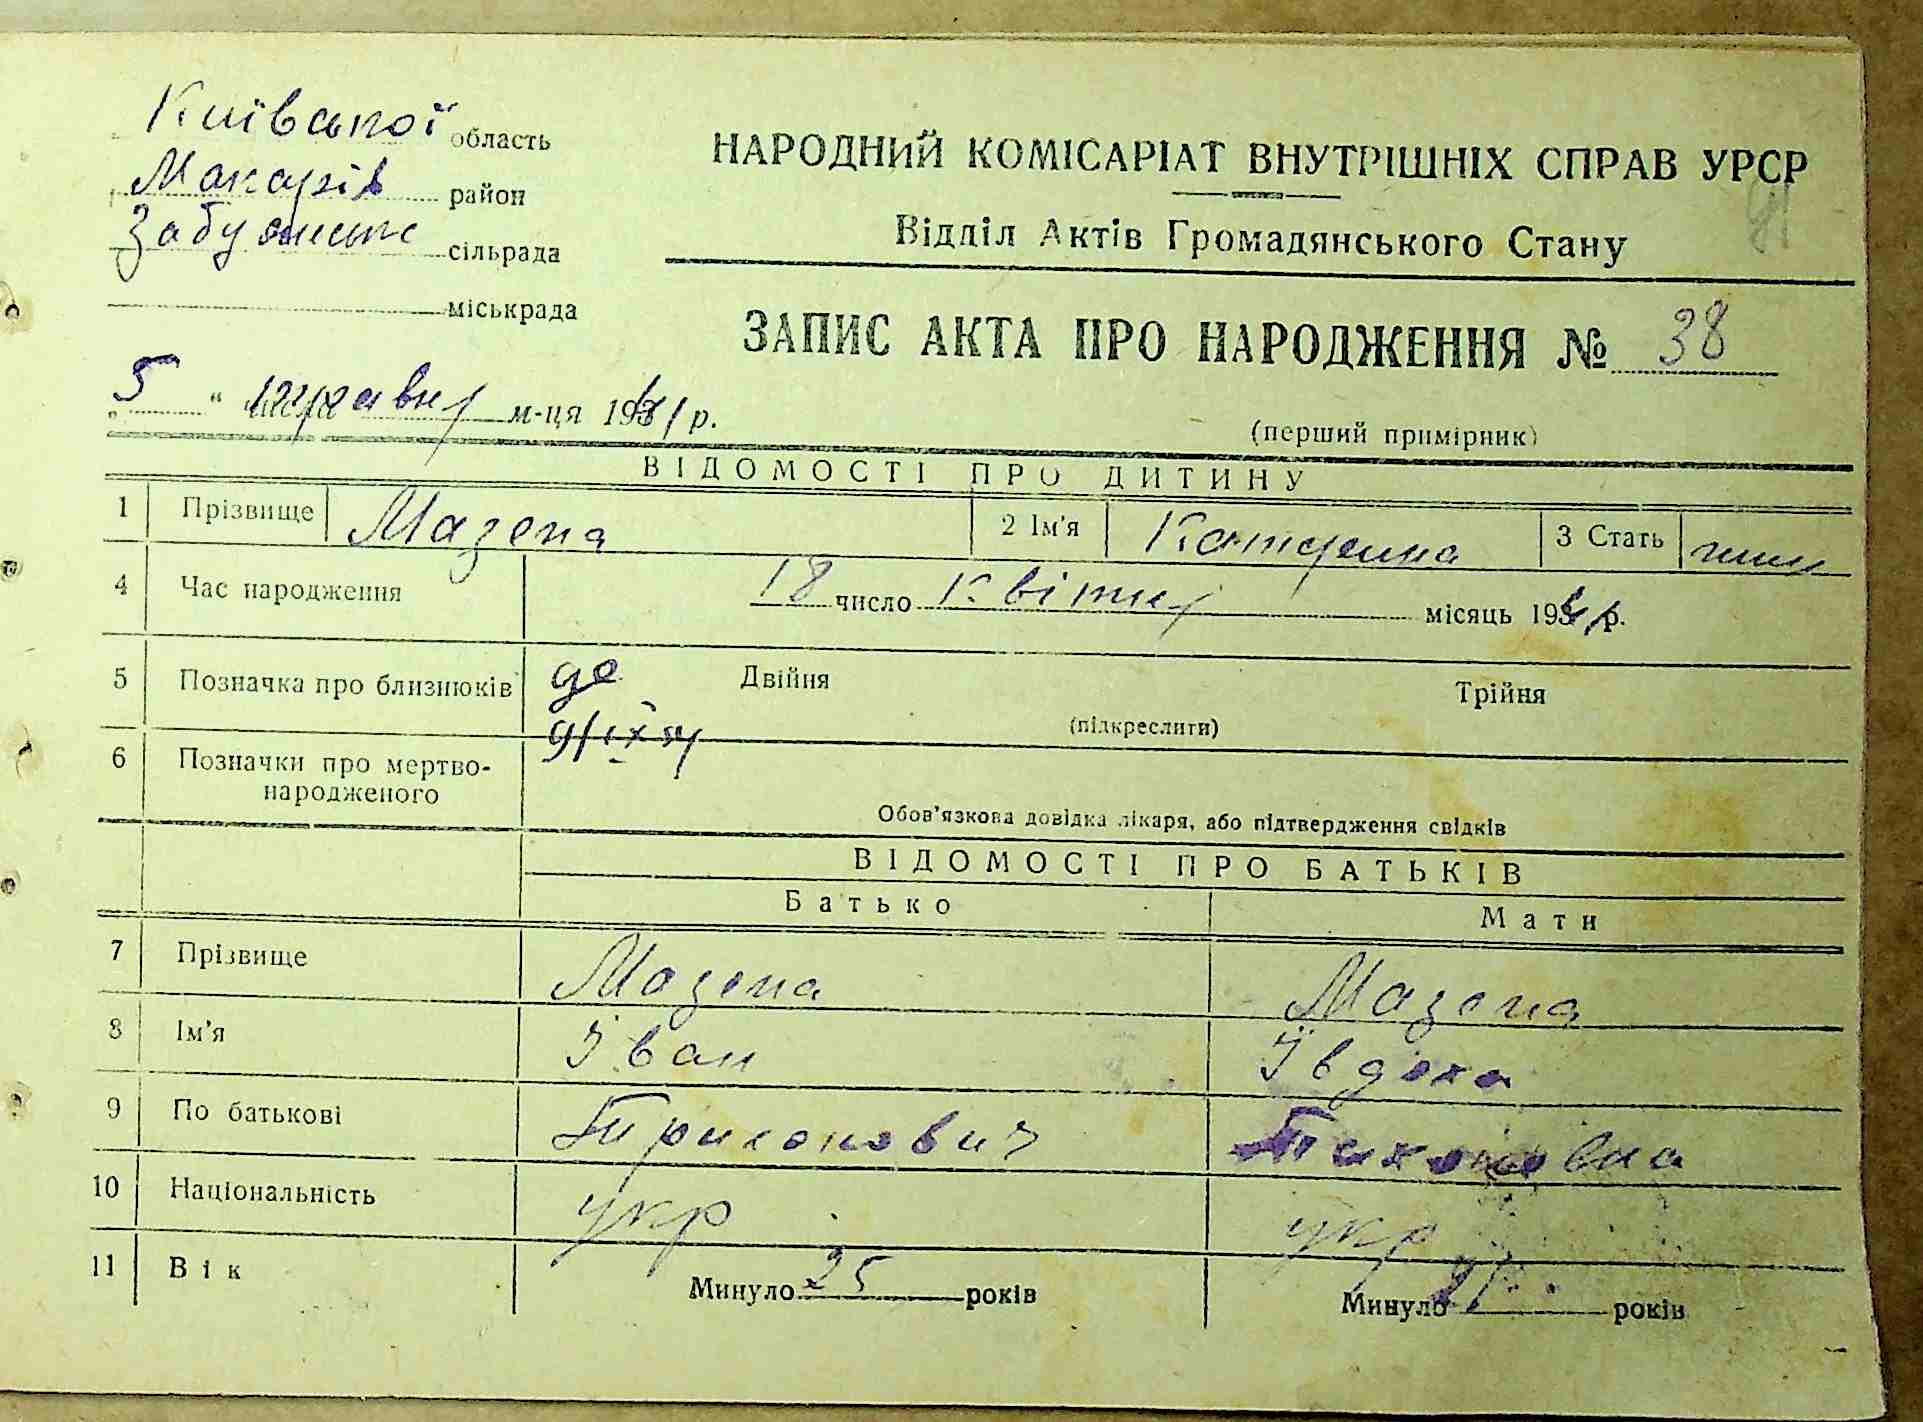 Київської область
Макарів район
Забуянське сільрада
міськрада
НАРОДНИЙ КОМІСАРІАТ ВНУТРІШНІХ СПРАВ УРСР
Відділ Актів Громадянського Стану
ЗАПИС АКТА ПРО НАРОДЖЕННЯ № 38
„5“ травня м-ця 1941 р.
(перший примірник)
ВІДОМОСТІ ПРО ДИТИНУ
1 Прізвище Мазепа 2 Ім'я Катерина 3 Стать
4 Час народження 18 число квітня місяць 1941 р.
5 Позначка про близнюків Двійня Трійня
(підкреслити)
6 Позначки про мертво-
народженого
Обов'язкова довідка лікаря, або підтвердження свідків
ВІДОМОСТІ ПРО БАТЬКІВ
Батько Мати
7 Прізвище Мазепа Мазепа
8 Ім'я Іван Івдоха
9 По батькові Трихонович Тихоновна
10 Національність укр укр
11 Вік Минуло 25 років Минуло років